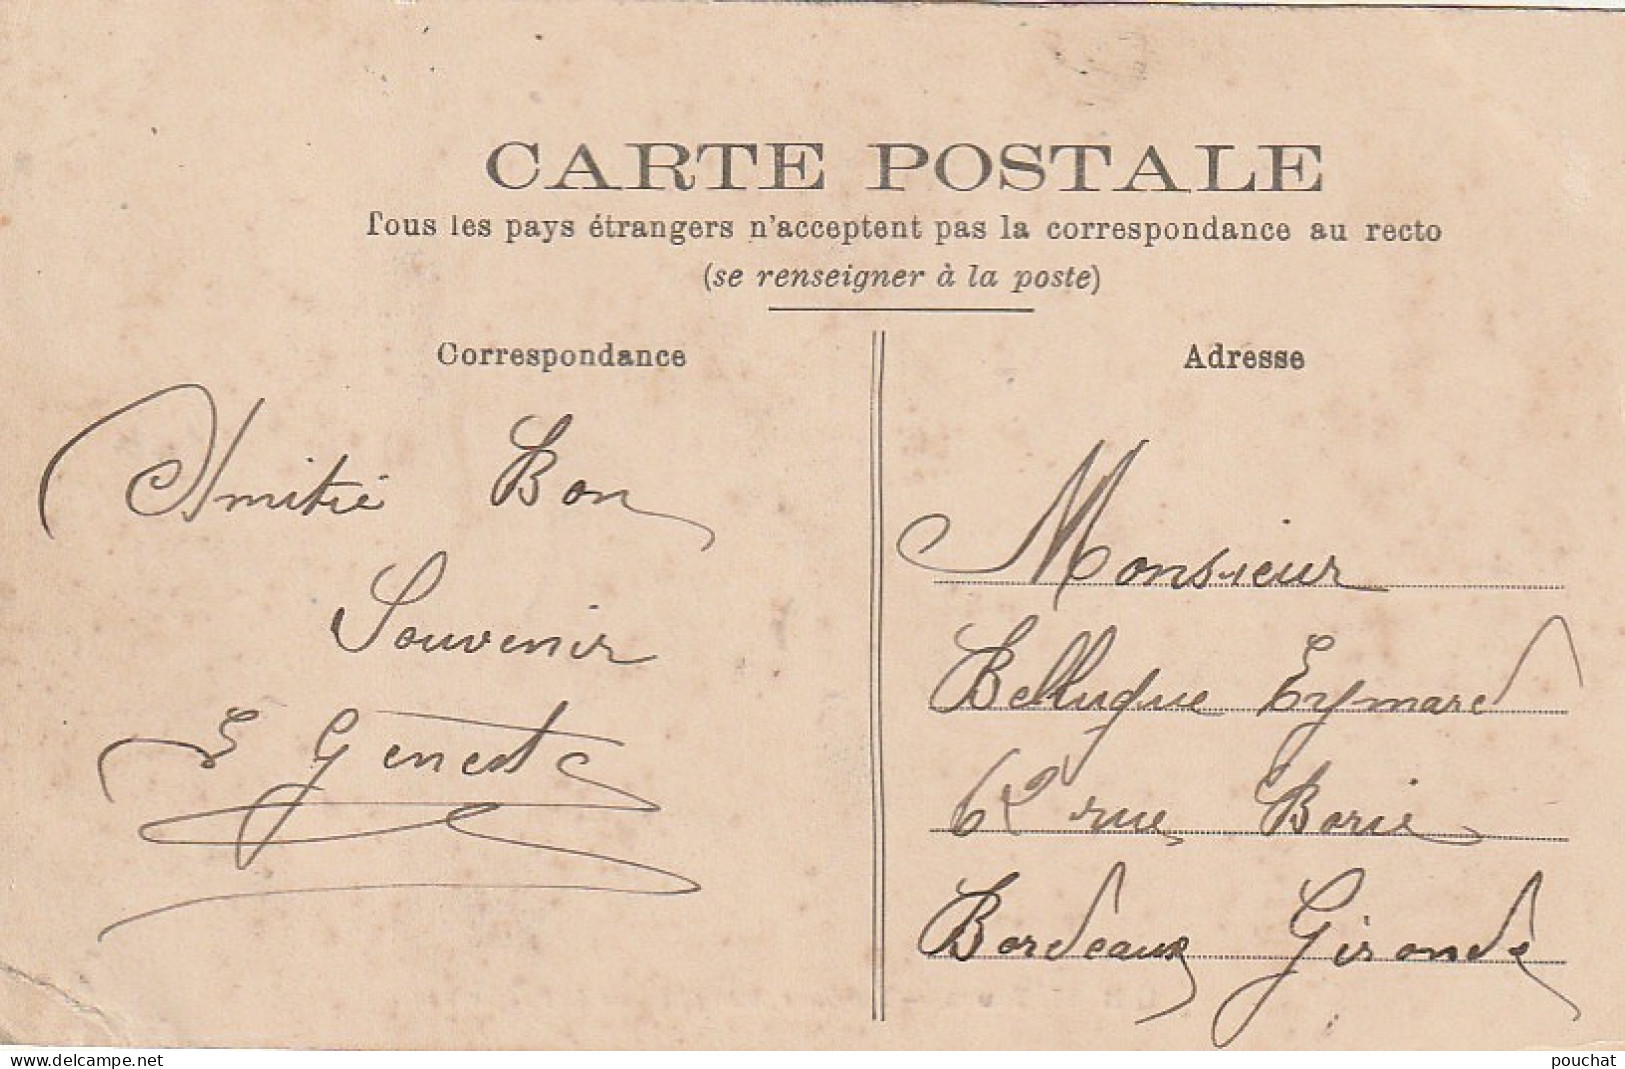 CARTE POSTALE
Tous les pays étrangers n'acceptent pas la correspondance au recto
(se renseigner à la poste)
Correspondance
Amitié Bon
Souvenir
E Geneste
Adresse
Monsieur
Bellugue Eymard
62 rue Borie
Bordeaux Gironde
www.delcampe.net
pouchat